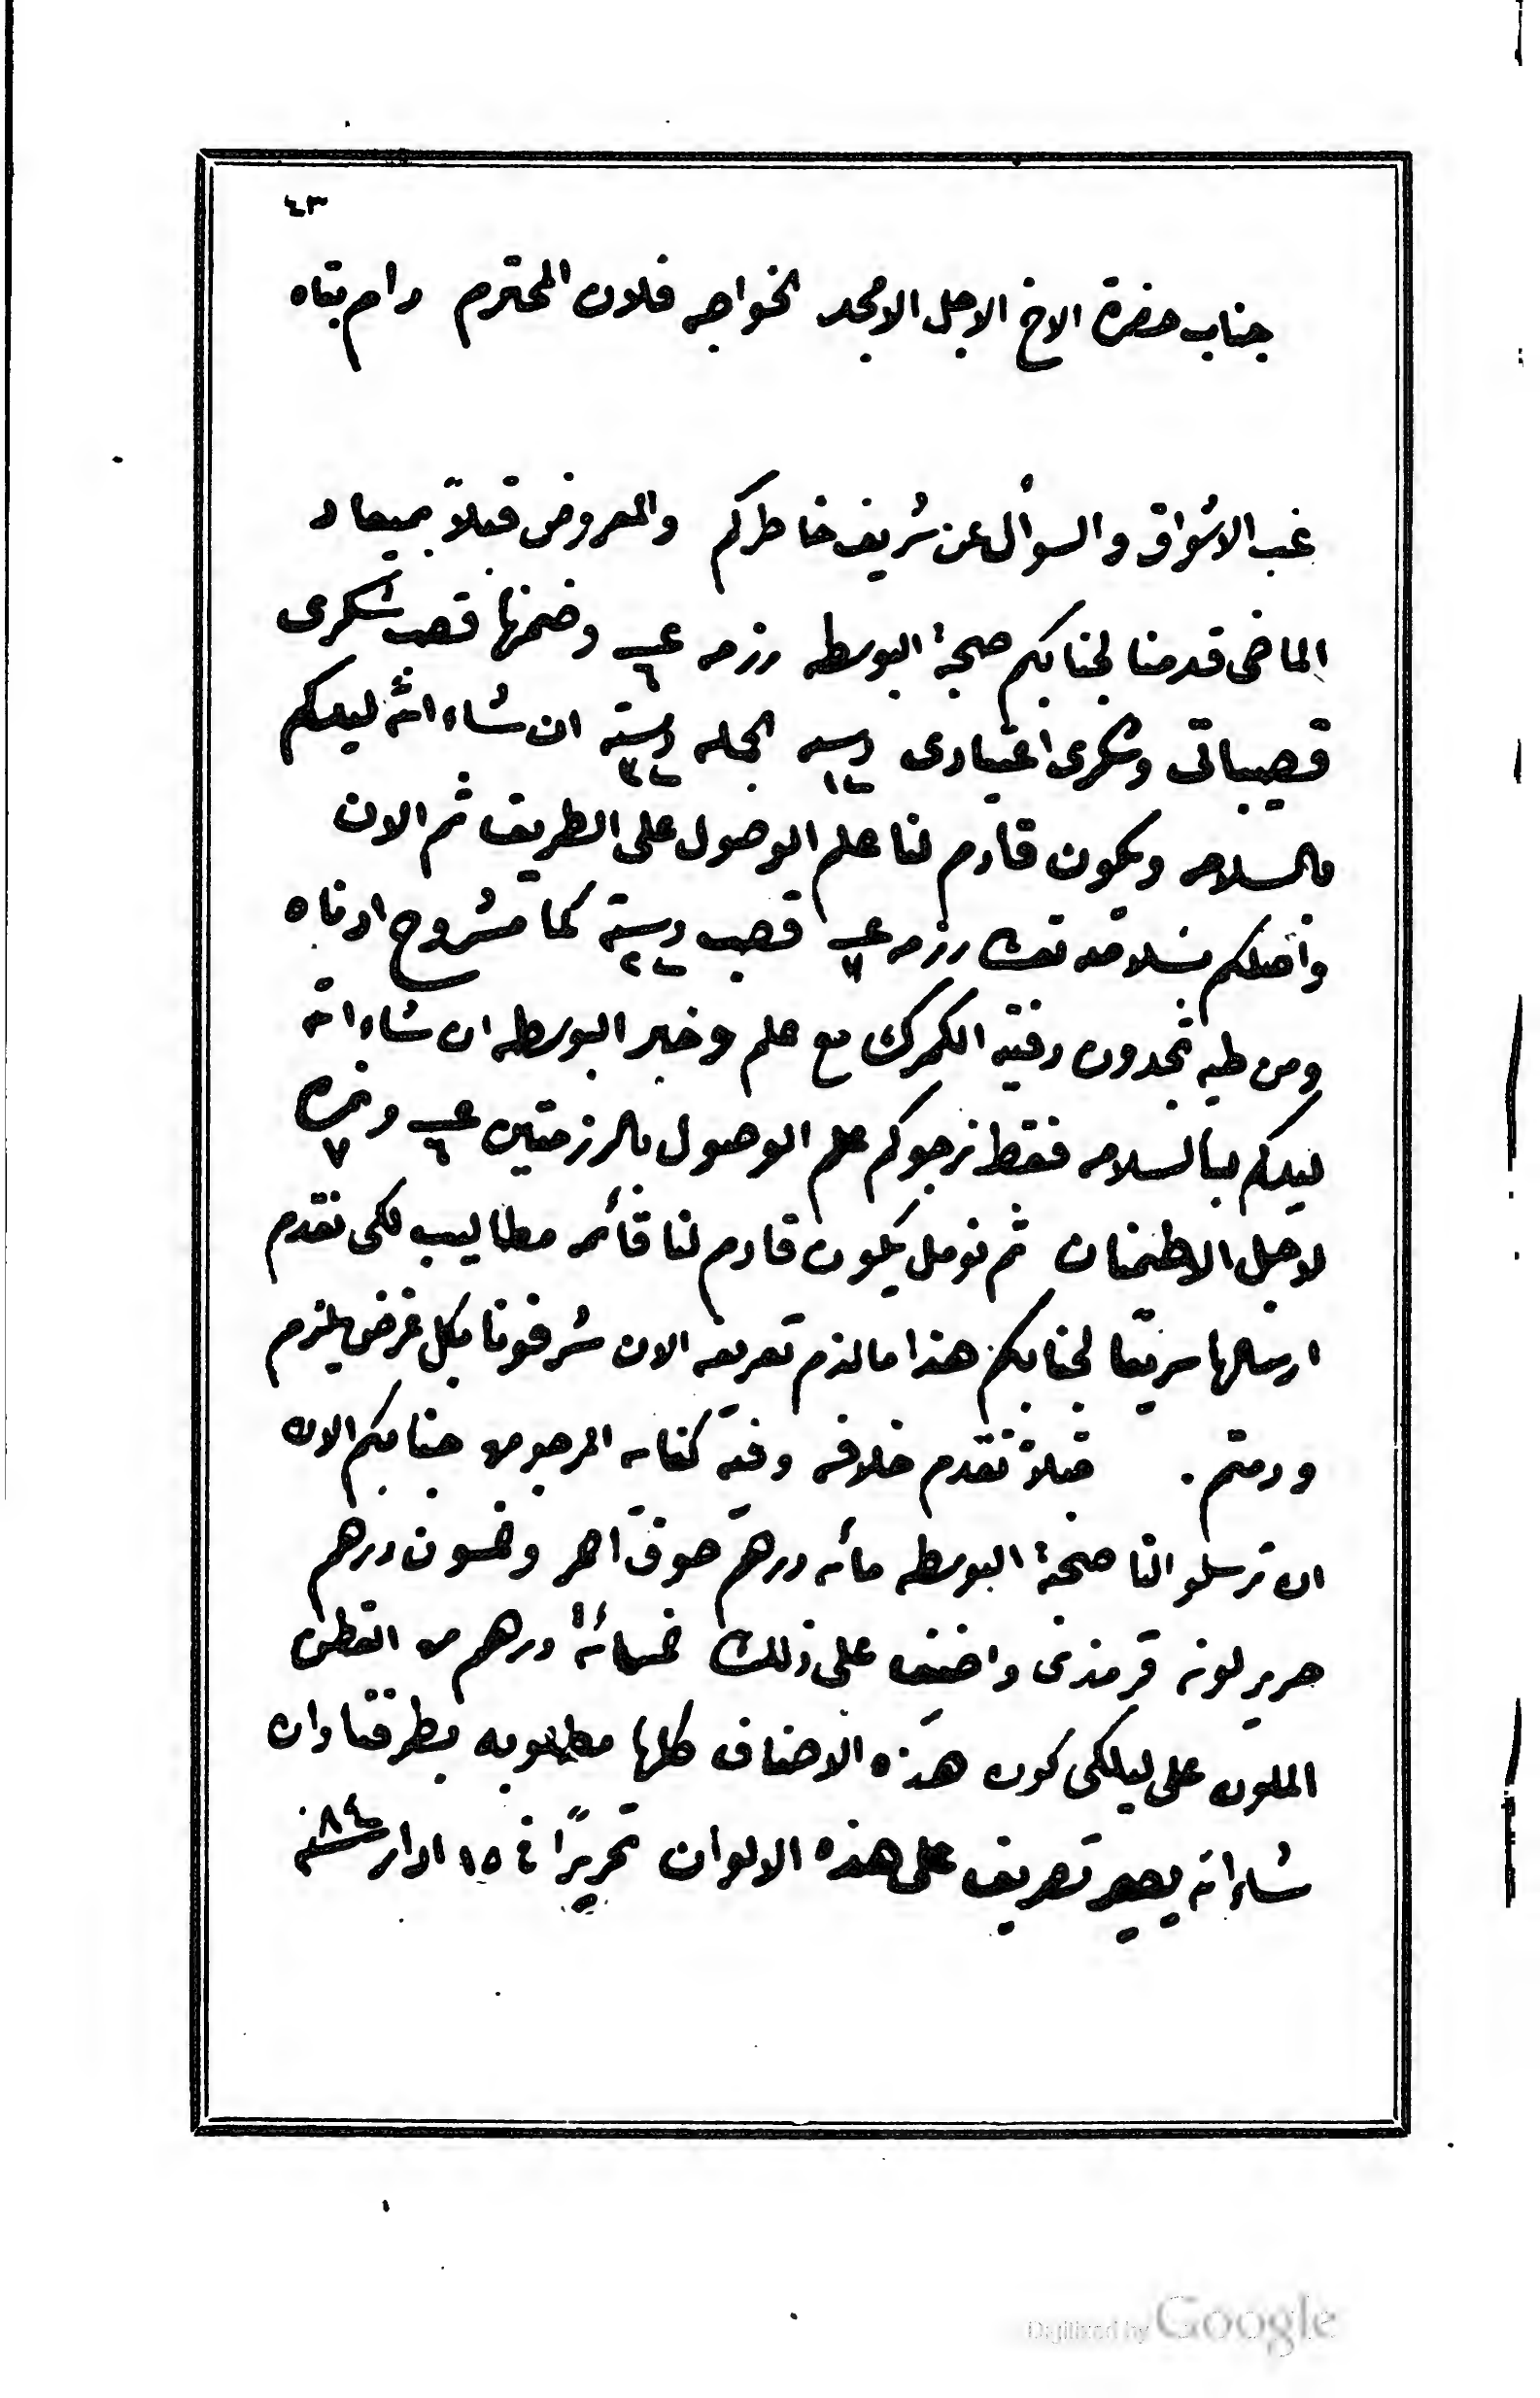 ٤٣
جناب حضرة الاخ الاجل الامجد الخواجه فلان المحترم دام بقاه
غب الاشواق والسوأل عن شريف خاطركم والمعروض قبلاً بميعاد
الماضى قدمنا لجنابكم صحبة البوسطه رزمه عـ ٦ وضمنها قصب شكرى
قصيباتى وشكرى اعتيادى دسته ١٢ الجمله دسته ان شاء الله ليدكم
بالسلامه ويكون قادم لنا علم الوصول على الطريق ثم الان
واصلكم رزمه عـ ٧ قصب دسته كما مشروح ادناه
ومن طيه تجدون رفتية الكمرك مع علم وخبر البوسطه ان شاء الله
ليدكم بالسلامه فقط نرجوكم علم الوصول بالرزمتين عـ ٦ ونمره ٧
لاجل الاطمنان ثم نومل يكون قادم لنا قائمة مطاليب لكى نقدم
ارسالها سريعًا لجنابكم هذا ما لزم تعريفه الان شرفونا بكل غرض يلزم
ودمتم . قبلاً تقدم خلافه وفيه كفايه المرجو من جنابكم الان
ان ترسلوا لنا صحبة البوسطه مائه درهم صوف احمر وخمسون درهم
حرير لونه قرمذى واضيف على ذلك خمسمائة درهم من القطن
الملون على ليلكى كون هذه الاصناف كلها مطلوبه بطرفنا وان
شاء الله يصير تصريف على هذه الالوان تحريرًا فى ١٥ ادار سنة ٨٤
Digitized by Google